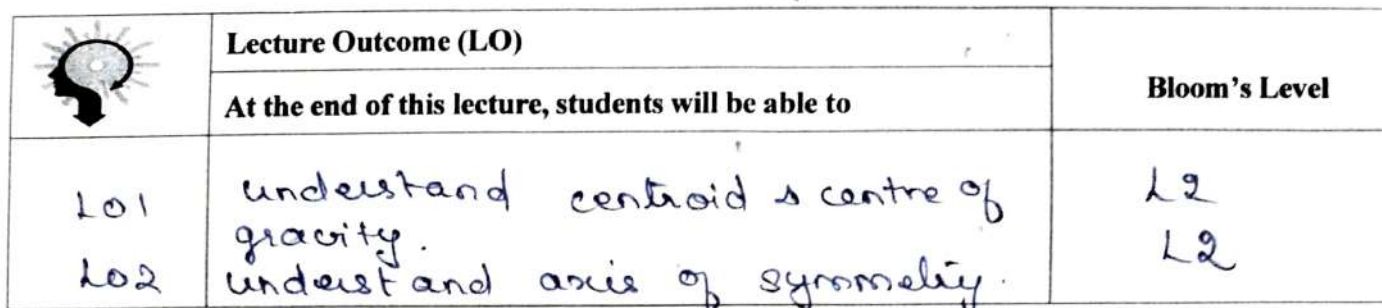 Lecture Outcome (LO)
At the end of this lecture, students will be able to
Bloom's Level
LO1 understand centroid & centre of L2
gravity.
LO2 understand axis of symmetry. L2